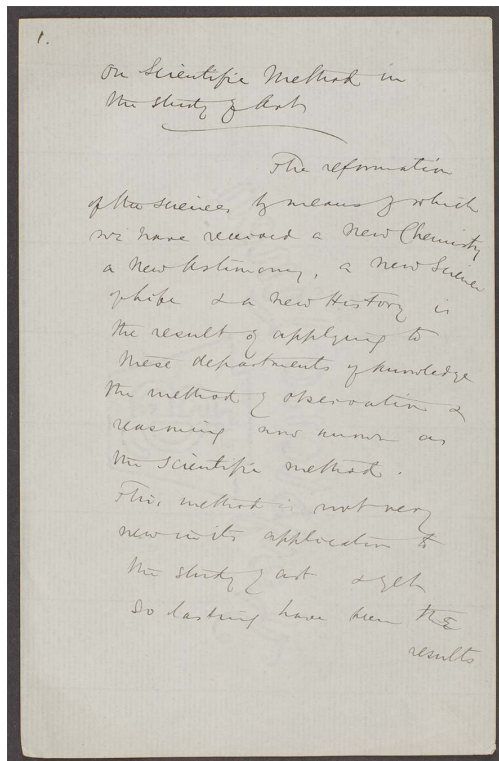 1.
On Scientific Method in
the study of Art
The reformation
of the sciences, by means of which
we have received a New Chemistry
a New Astronomy, a New Science
of Life & a New History is
the result of applying to
these departments of knowledge
the method of observation &
reasoning now known as
the scientific method.
This method is not very
new in its application to
the study of art & yet
so lasting have been the
results